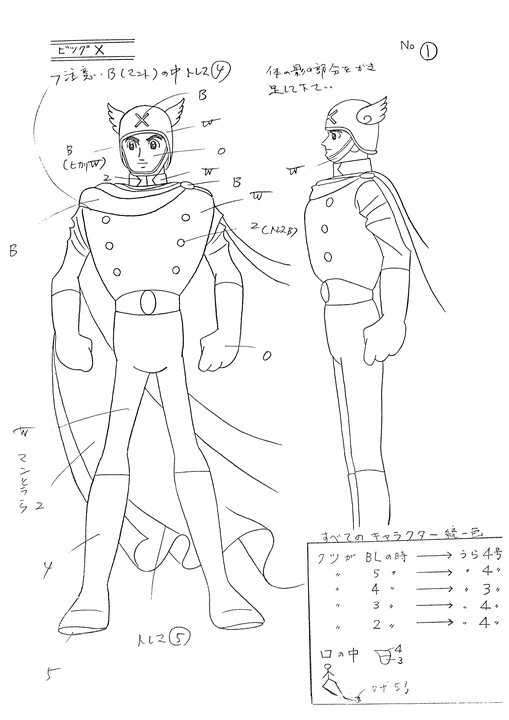 ビッグX
No ①
注意・B(マント)の中 トレス④
体の影の部分をかき
足して下さい
B
W
B
(ヒカリW)
O
2
W
B
W
W
2(トレスB)
B
O
W
マントうら2
4
5
トレス⑤
すべてのキャラクター統一色
クツがBLの時 → うら4号
〃 5 〃 → 〃 4〃
〃 4 〃 → 〃 3〃
〃 3 〃 → 〃 4〃
〃 2 〃 → 〃 4〃
口の中
4
3